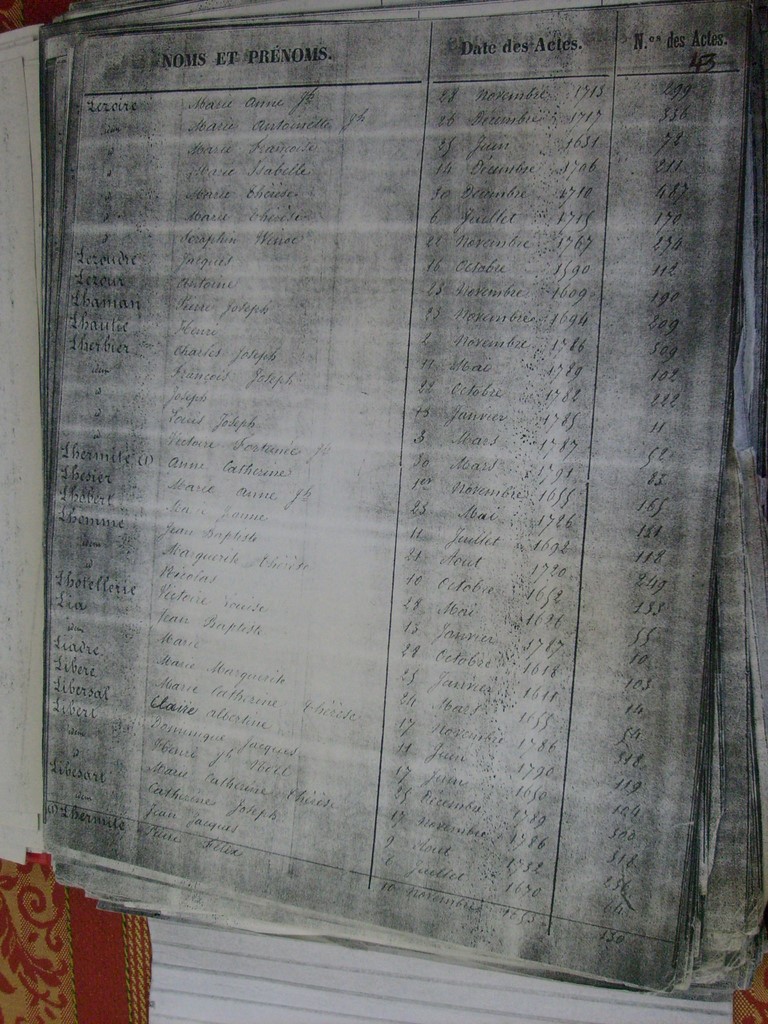 NOMS ET PRÉNOMS. Date des Actes. N.os des Actes.
43
Lezoire Marie Anne Jh 28 Novembre 1713 299
idem Marie Antoinette Jh 26 Décembre 1717 336
d Marie Françoise 25 Juin 1651 72
d Marie Isabelle 14 Décembre 1706 211
d Marie Thérèse 30 Décembre 1710 487
d Marie Thérèse 6 Juillet 1715 170
d Séraphin 21 Novembre 1767 234
Lezoudre Jacques 16 Octobre 1590 112
Lezour Antoine 23 Novembre 1609 190
Lhaman Pierre Joseph 23 Novembre 1694 209
Lhautie Henri 2 Novembre 1786 309
Lherbier Charles Joseph 11 Mai 1789 102
idem François Joseph 22 Octobre 1782 222
d Joseph 13 Janvier 1785 11
d Louis Joseph 3 Mars 1787 52
d Victoire Fortunée Jh 30 Mars 1791 83
Lhermite (1) Anne Catherine 1er Novembre 1655 165
Lhesier Marie Anne Jh 23 Mai 1786 121
Lhobert Marie Jeanne 11 Juillet 1692 118
Lhomme Jean Baptiste 21 Aout 1720 249
idem Marguerite Thérèse 10 Octobre 1652 133
d Nicolas 28 Mai 1626 55
Lhotellerie Victoire Louise 13 Janvier 1787 10
Lia Jean Baptiste 28 Octobre 1618 103
idem Marie 25 Janvier 1611 14
Liadre Marie Marguerite 24 Mars 1655 54
Libere Marie Catherine Thérèse 17 Novembre 1786 318
Libersal Claire Albertine 11 Juin 1790 119
Libert Dominique Jacques 17 Juin 1650 104
idem Henri Jh Noël 25 Décembre 1789 300
d Marie Catherine Thérèse 17 Novembre 1786 318
Libessart Catherine Joseph 9 Aout 1732 236
idem Jean Jacques 6 Juillet 1670 64
(1) Lhermite Félix 10 Novembre 1653 130